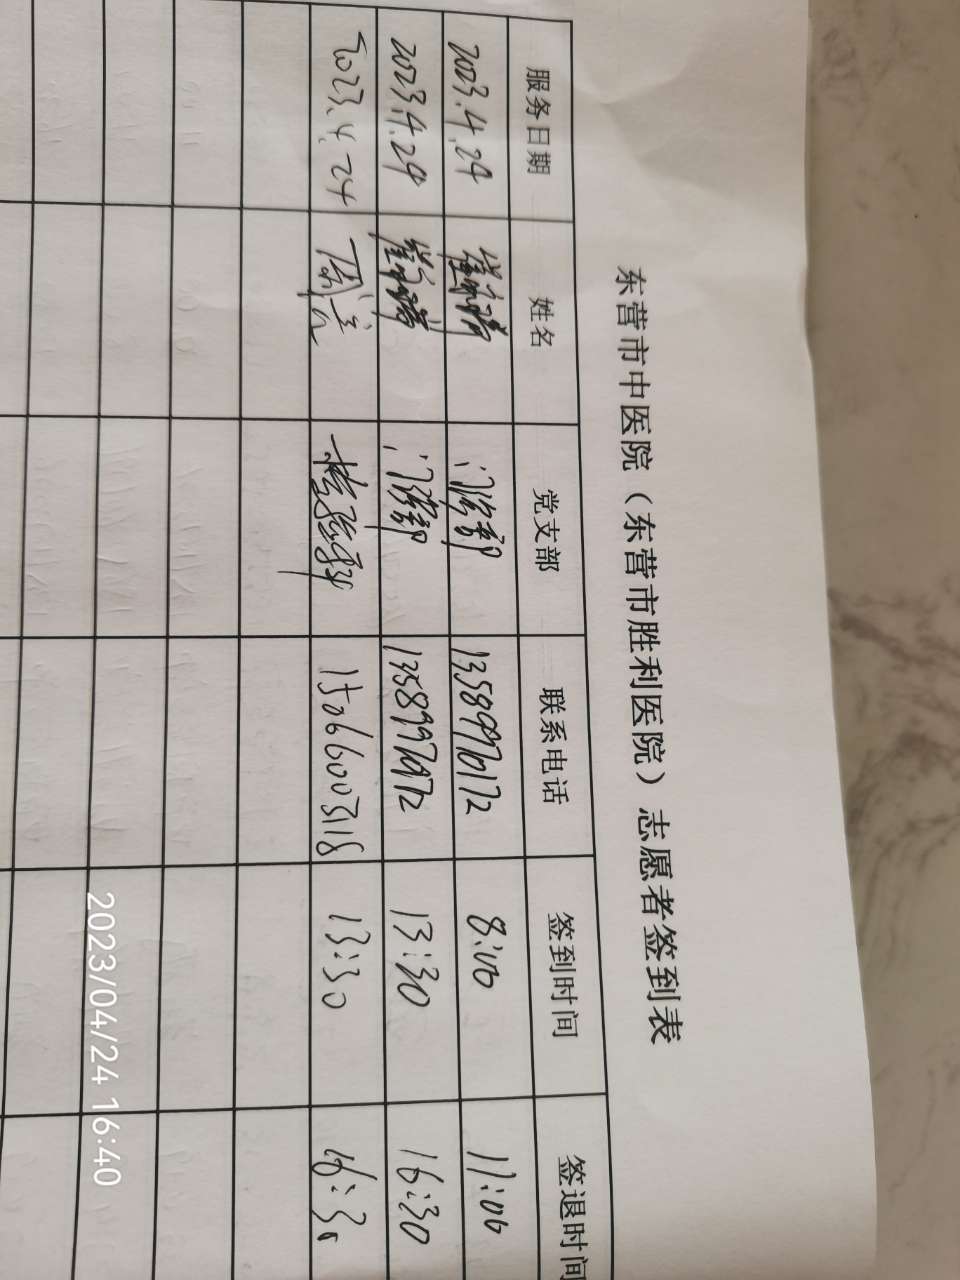 东营市中医院（东营市胜利医院）志愿者签到表
服务日期 姓名 党支部 联系电话 签到时间 签退时间
2023.4.24 门诊部 13589970172 8:00 11:00
2023.4.24 门诊部 13589970172 13:30 16:30
2023.4.24 15066003118 13:30 16:30
2023/04/24 16:40